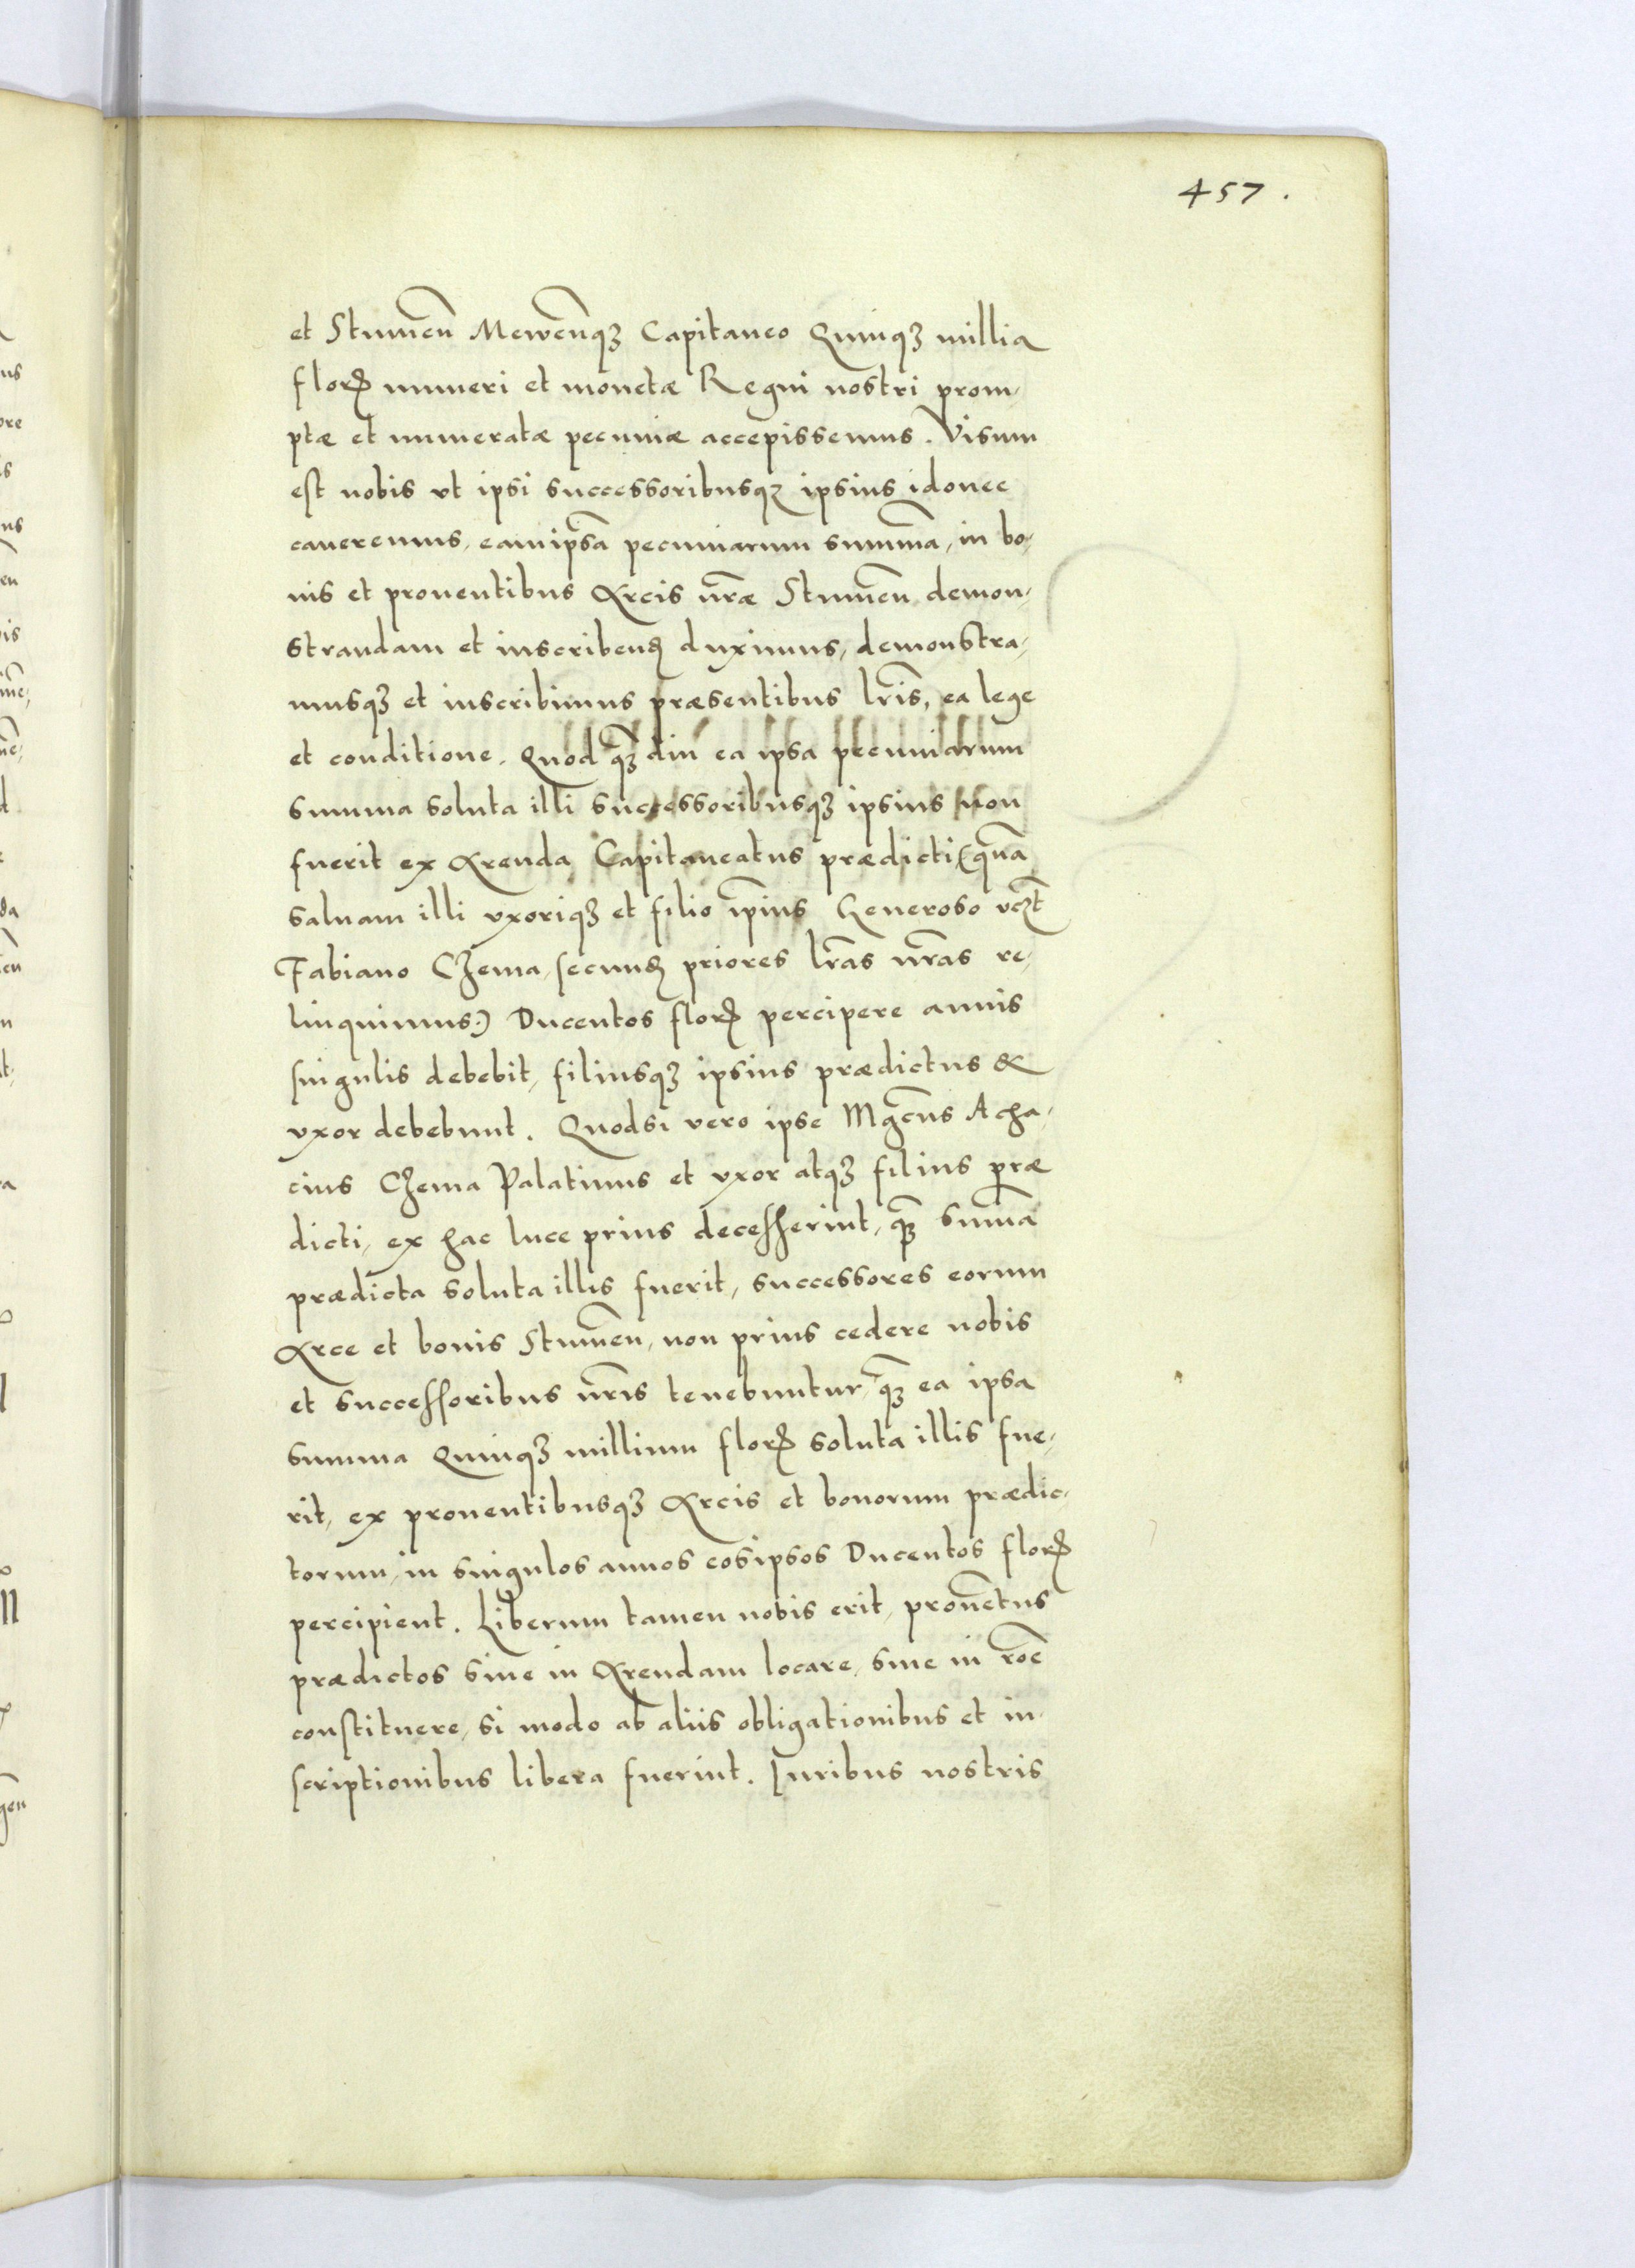 457.
et Stumeñ Meweñqꝫ Capitaneo Quinqꝫ millia
florꝭ numeri et monetæ Regni nostri prom-
ptæ et numeratæ pecuniæ accepissemus. Visum
est nobis vt ipsi successoribusqꝫ ipsius idonee
caueremus, eamipsã pecuniarum summã, in bo-
nis et prouentibus Arcis nr̃æ Stumeñ demon-
strandam et inscribenꝺ duximus, demonstra-
musqꝫ et inscribimus præsentibus lr̃is, ea lege
et conditione. Quod qꝫ̃ diu ea ipsa pecuniarum
summa soluta illi successoribusqꝫ ipsius non
fuerit ex Arenda Capitaneatus prædicti (quã
saluam illi vxoriqꝫ et filio ip̃ius Generoso vcꝫt̃
Fabiano Czema, secunꝺ priores lr̃as nr̃as re-
linquimus:) Ducentos florꝭ percipere annis
singulis debebit, filiusqꝫ ipsius prædictus &
vxor debebunt. Quodsi vero ipse Mgc̃us Acha-
cius Czema Palatinus et vxor atqꝫ filius præ
dicti, ex hac luce prius decesserint, qꝫ̃ summã
prædicta soluta illis fuerit, successores eorum
Arce et bonis Stumeñ, non prius cedere nobis
et successoribus nr̃is tenebuntur, qꝫ̃ ea ipsa
summa Quinqꝫ millium florꝭ soluta illis fue-
rit, ex prouentibusqꝫ Arcis et bonorum prædic-
torum, in singulos annos eosipsos Ducentos florꝭ
percipient. Liberum tamen nobis erit, prouẽtus
prædictos siue in Arendam locare, siue in rõe
constituere, si modo ab aliis obligationibus et in-
scriptionibus libera fuerint. Iuribus nostris